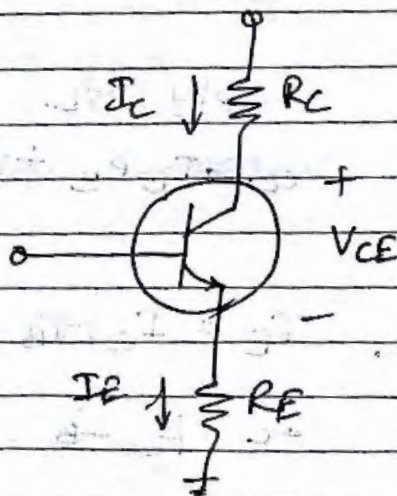 I_C ↓ R_C
+
V_CE
-
I_E ↓ R_E